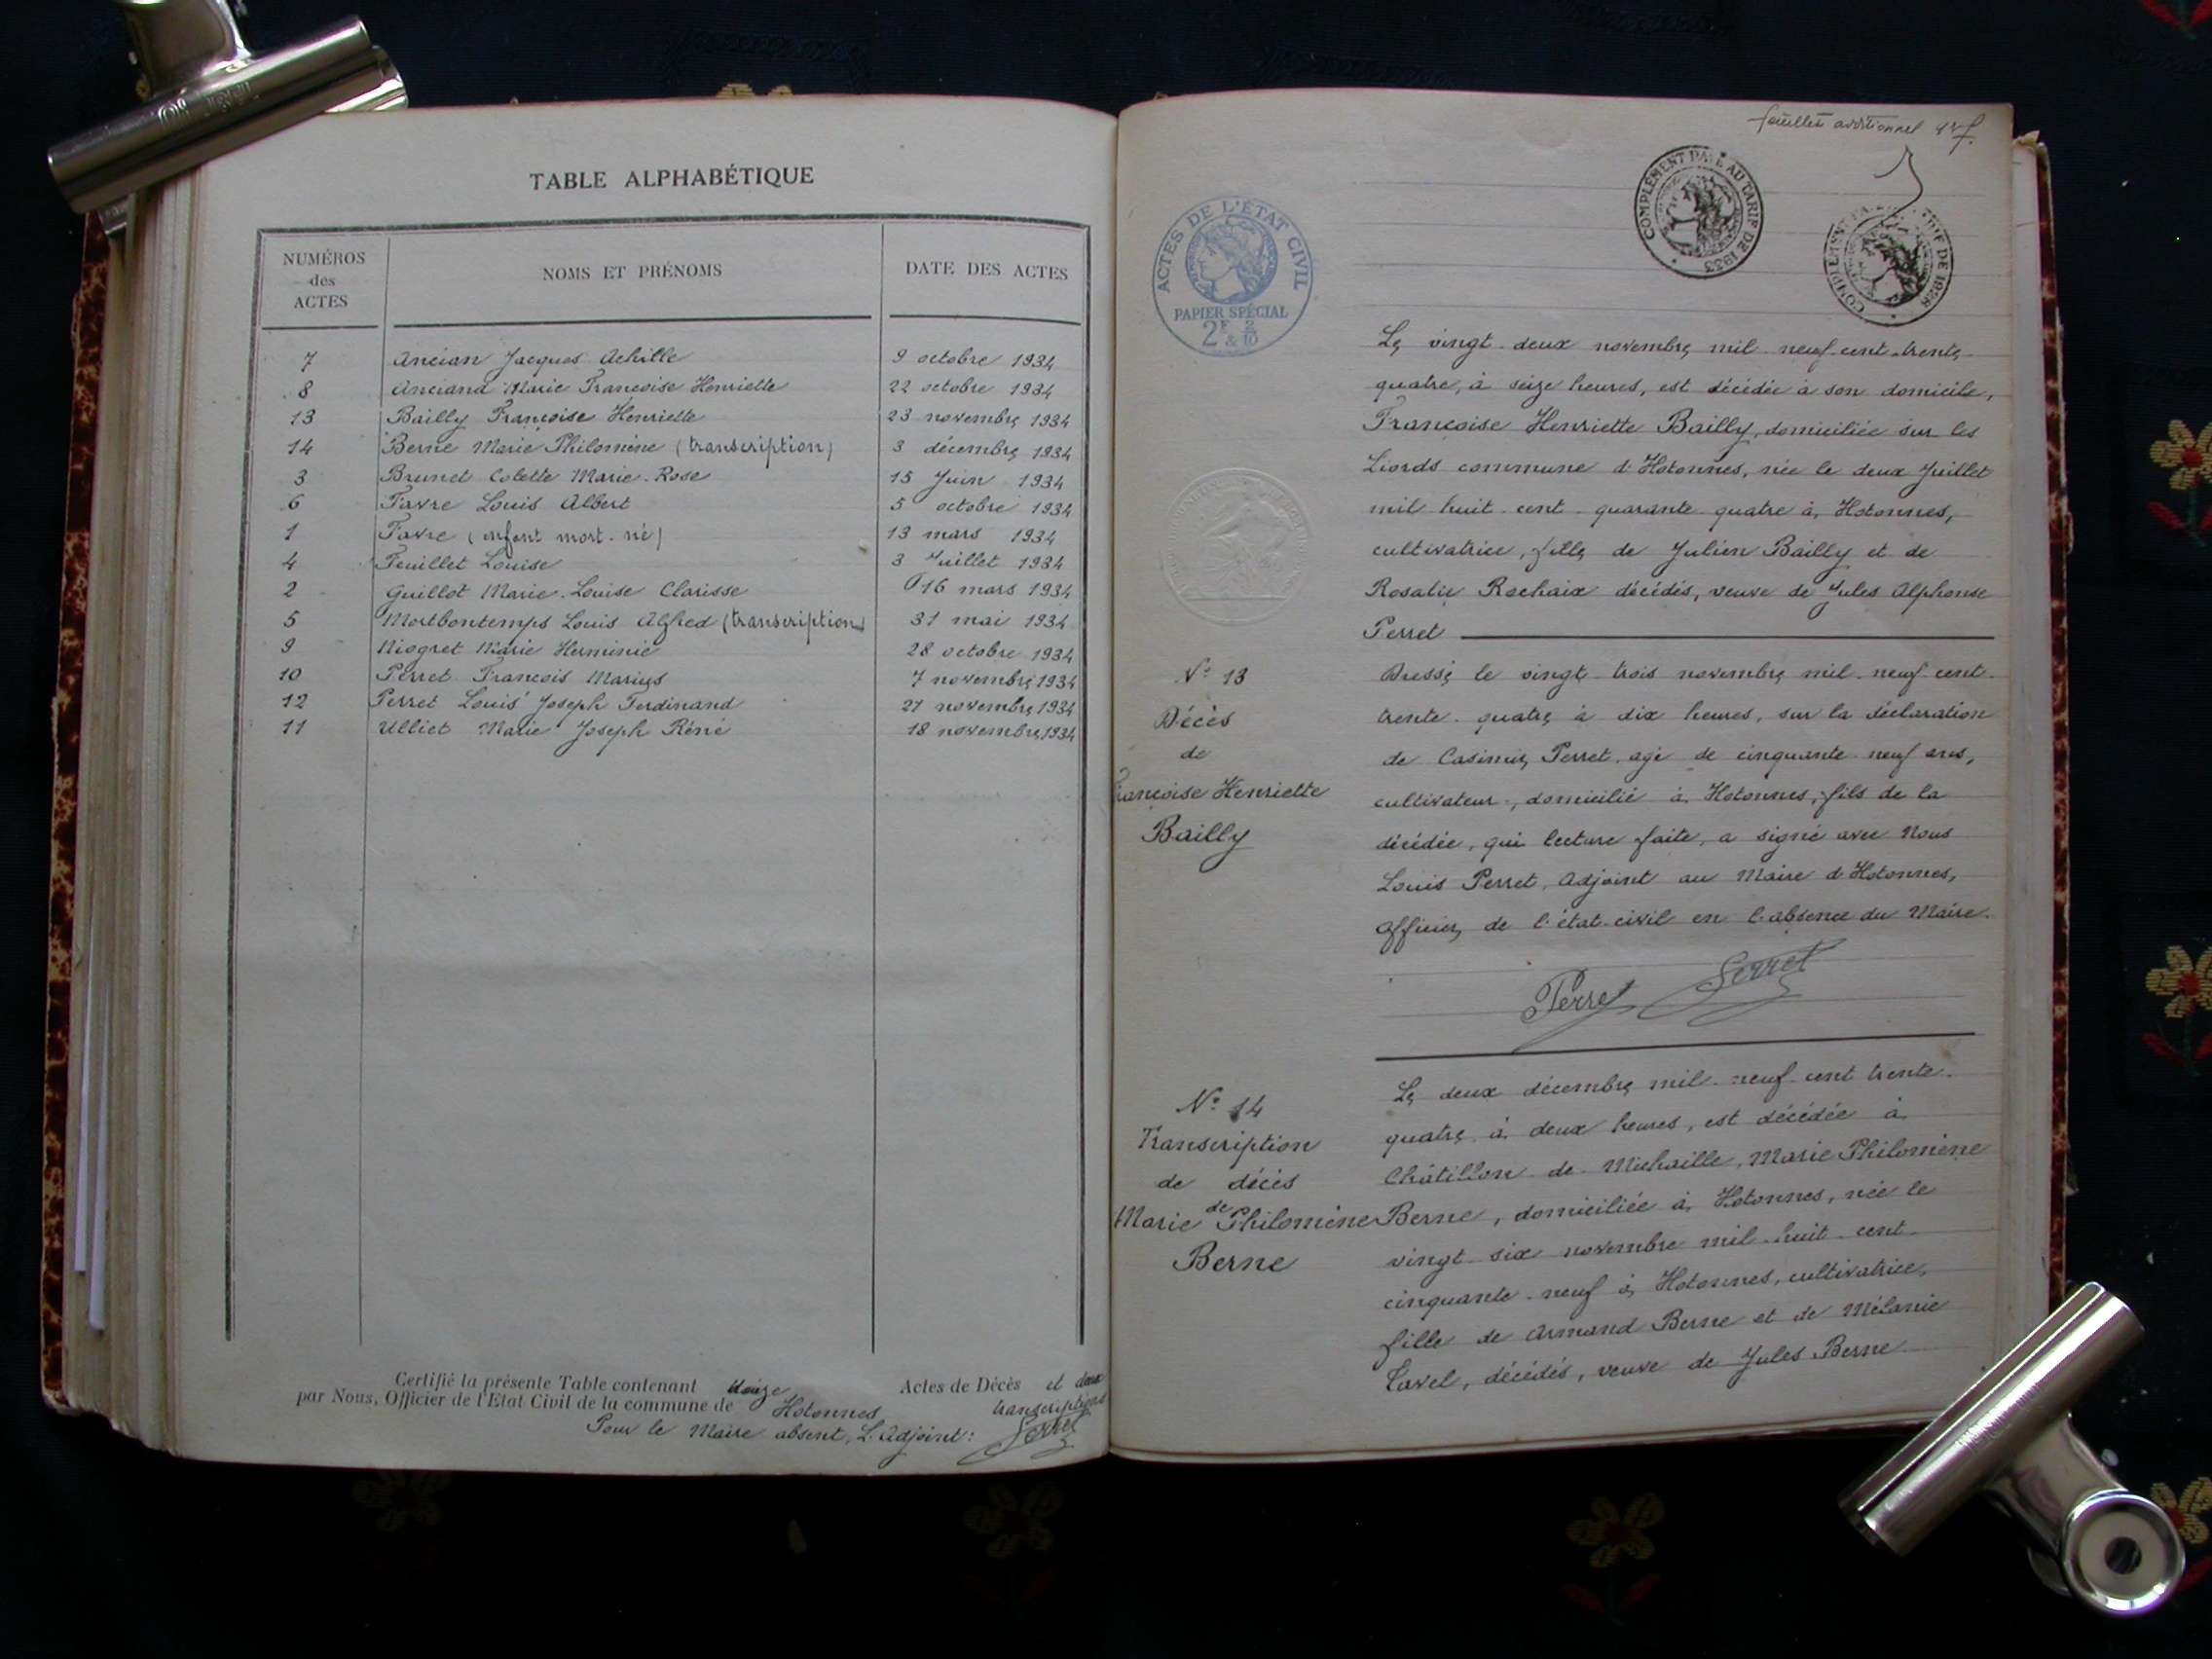 TABLE ALPHABÉTIQUE
NUMÉROS des ACTES NOMS ET PRÉNOMS DATE DES ACTES
7 Ancian Jacques Achille 9 octobre 1934
8 Anciand Marie Françoise Henriette 22 octobre 1934
13 Bailly Françoise Henriette 23 novembre 1934
14 Berne Marie Philomène (transcription) 3 décembre 1934
3 Brunet Colette Marie-Rose 15 Juin 1934
6 Favre Louis Albert 5 octobre 1934
1 Favre (enfant mort-né) 13 mars 1934
4 Feuillet Louise 3 Juillet 1934
2 Guillot Marie-Louise Clarisse 16 mars 1934
5 Montbontemps Louis Alfred (transcription) 31 mai 1934
9 Niogret Marie Herminie 28 octobre 1934
10 Perret François Marius 7 novembre 1934
12 Perret Louis Joseph Ferdinand 21 novembre 1934
11 Ulliet Marie Joseph Réné 18 novembre 1934
Certifié la présente Table contenant Actes de Décès et deux
par Nous, Officier de l'Etat Civil de la commune de Hotonnes transcriptions
Pour le Maire absent, L'Adjoint:
Perret
feuillet additionnel
COMPLÉMENT PAYÉ AU TARIF DE 1933
ACTES DE L'ÉTAT CIVIL
PAPIER SPÉCIAL
2F & 2/10
Le vingt-deux novembre mil-neuf-cent-trente-
quatre, à seize heures, est décédée à son domicile,
Françoise Henriette Bailly, domiciliée sur les
Liords commune d'Hotonnes, née le deux Juillet
mil-huit-cent-quarante-quatre à Hotonnes,
cultivatrice, fille de Julien Bailly et de
Rosalie Rochaix décédés, veuve de Jules Alphonse
Perret
N° 13
Décès
de
Françoise Henriette
Bailly
Dressé le vingt-trois novembre mil-neuf-cent-
trente-quatre à dix heures, sur la déclaration
de Casimir Perret agé de cinquante-neuf ans,
cultivateur, domicilié à Hotonnes, fils de la
décédée, qui lecture faite, a signé avec Nous
Louis Perret, Adjoint au Maire d'Hotonnes,
Officier de l'état-civil en l'absence du Maire.
Perret Perret
N° 14
Transcription
de décès
de
Marie Philomène
Berne
Le deux décembre mil-neuf-cent trente-
quatre à deux heures, est décédée à
Châtillon-de-Michaille, Marie Philomène
Berne, domiciliée à Hotonnes, née le
vingt-six novembre mil-huit-cent-
cinquante-neuf à Hotonnes, cultivatrice,
fille de Armand Berne et de Mélanie
Tavel, décédés, veuve de Jules Berne